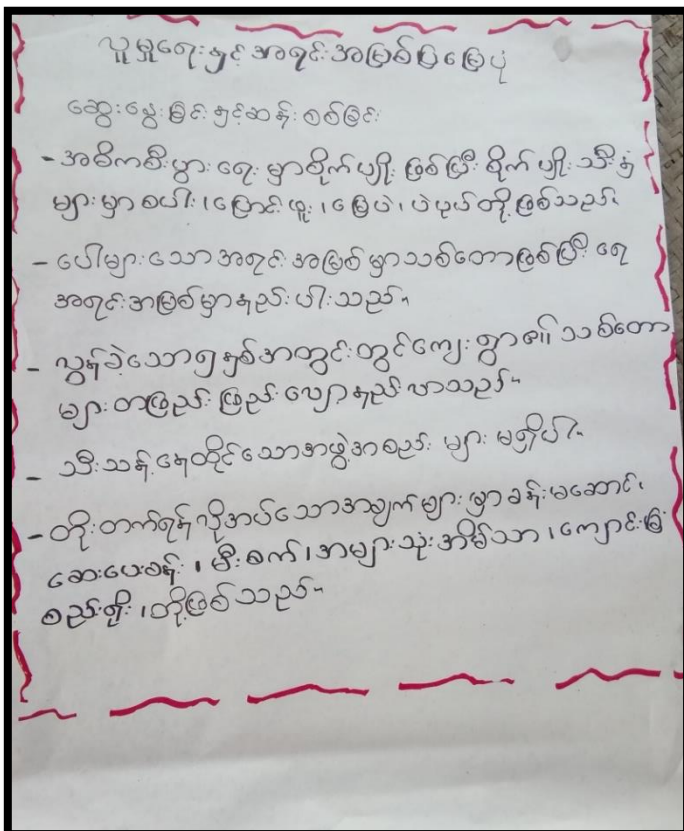 လူမှုရေးနှင့်အရင်းအမြစ်ပြမြေပုံ
ဆွေးနွေးခြင်းနှင့်ဆန်းစစ်ခြင်း
- အဓိကစီးပွားရေးမှာစိုက်ပျိုးဖြစ်ပြီး စိုက်ပျိုးသီးနှံ
များမှာစပါး၊ပြောင်းဖူး၊မြေပဲ၊ပဲပုပ်တို့ဖြစ်သည်။
- ပေါများသောအရင်းအမြစ်မှာသစ်တောဖြစ်ပြီး ရေ
အရင်းအမြစ်မှာနည်းပါးသည်။
- လွန်ခဲ့သော၅နှစ်အတွင်းတွင်ကျေးရွာ၏သစ်တော
များတဖြည်းဖြည်းလျော့နည်းလာသည်။
- သီးသန့်နေထိုင်သောအဖွဲ့အစည်းများမရှိပါ။
- တိုးတက်ရန်လိုအပ်သောအချက်များမှာခန်းမဆောင်၊
ဆေးပေးခန်း၊မီးစက်၊အများသုံးအိမ်သာ၊ကျောင်းခြံ
စည်းရိုး၊တို့ဖြစ်သည်။